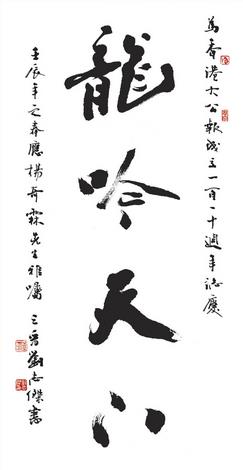 為香港大公報成立一百一十週年誌慶
龍吟天下
壬辰年之春應楊奇霖先生雅囑 三name劉志傑書